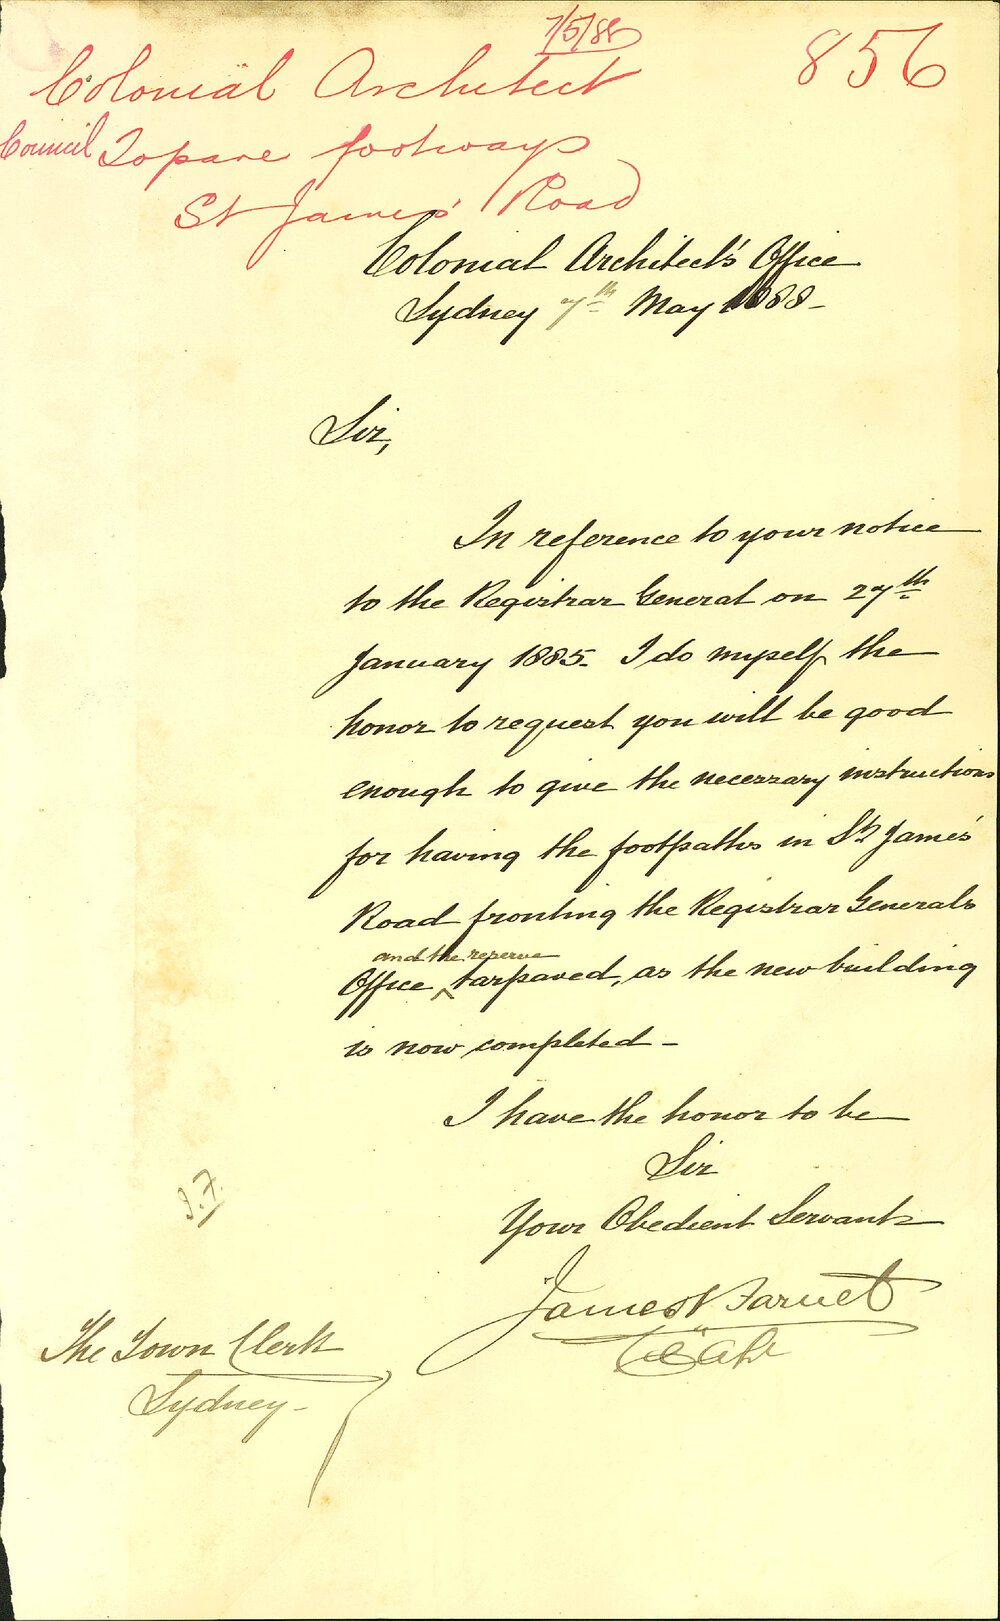 7/5/88
856
Colonial Architect
Council To pave footways
St James' Road
Colonial Architect's Office
Sydney 7th May 1888-
Sir,
In reference to your notice
to the Registrar General on 27th
January 1885. I do myself the
honor to request you will be good
enough to give the necessary instructions
for having the footpaths in St. James'
Road fronting the Registrar Generals
and the reserve
Office ^ tarpaved, as the new building
is now completed-
I have the honor to be
Sir
Your Obedient Servant
James Barnet
J.F.
The Town Clerk
Sydney-